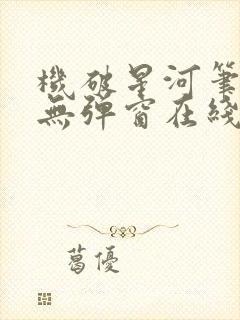 機破星河筆
無彈窗在綫
葛優